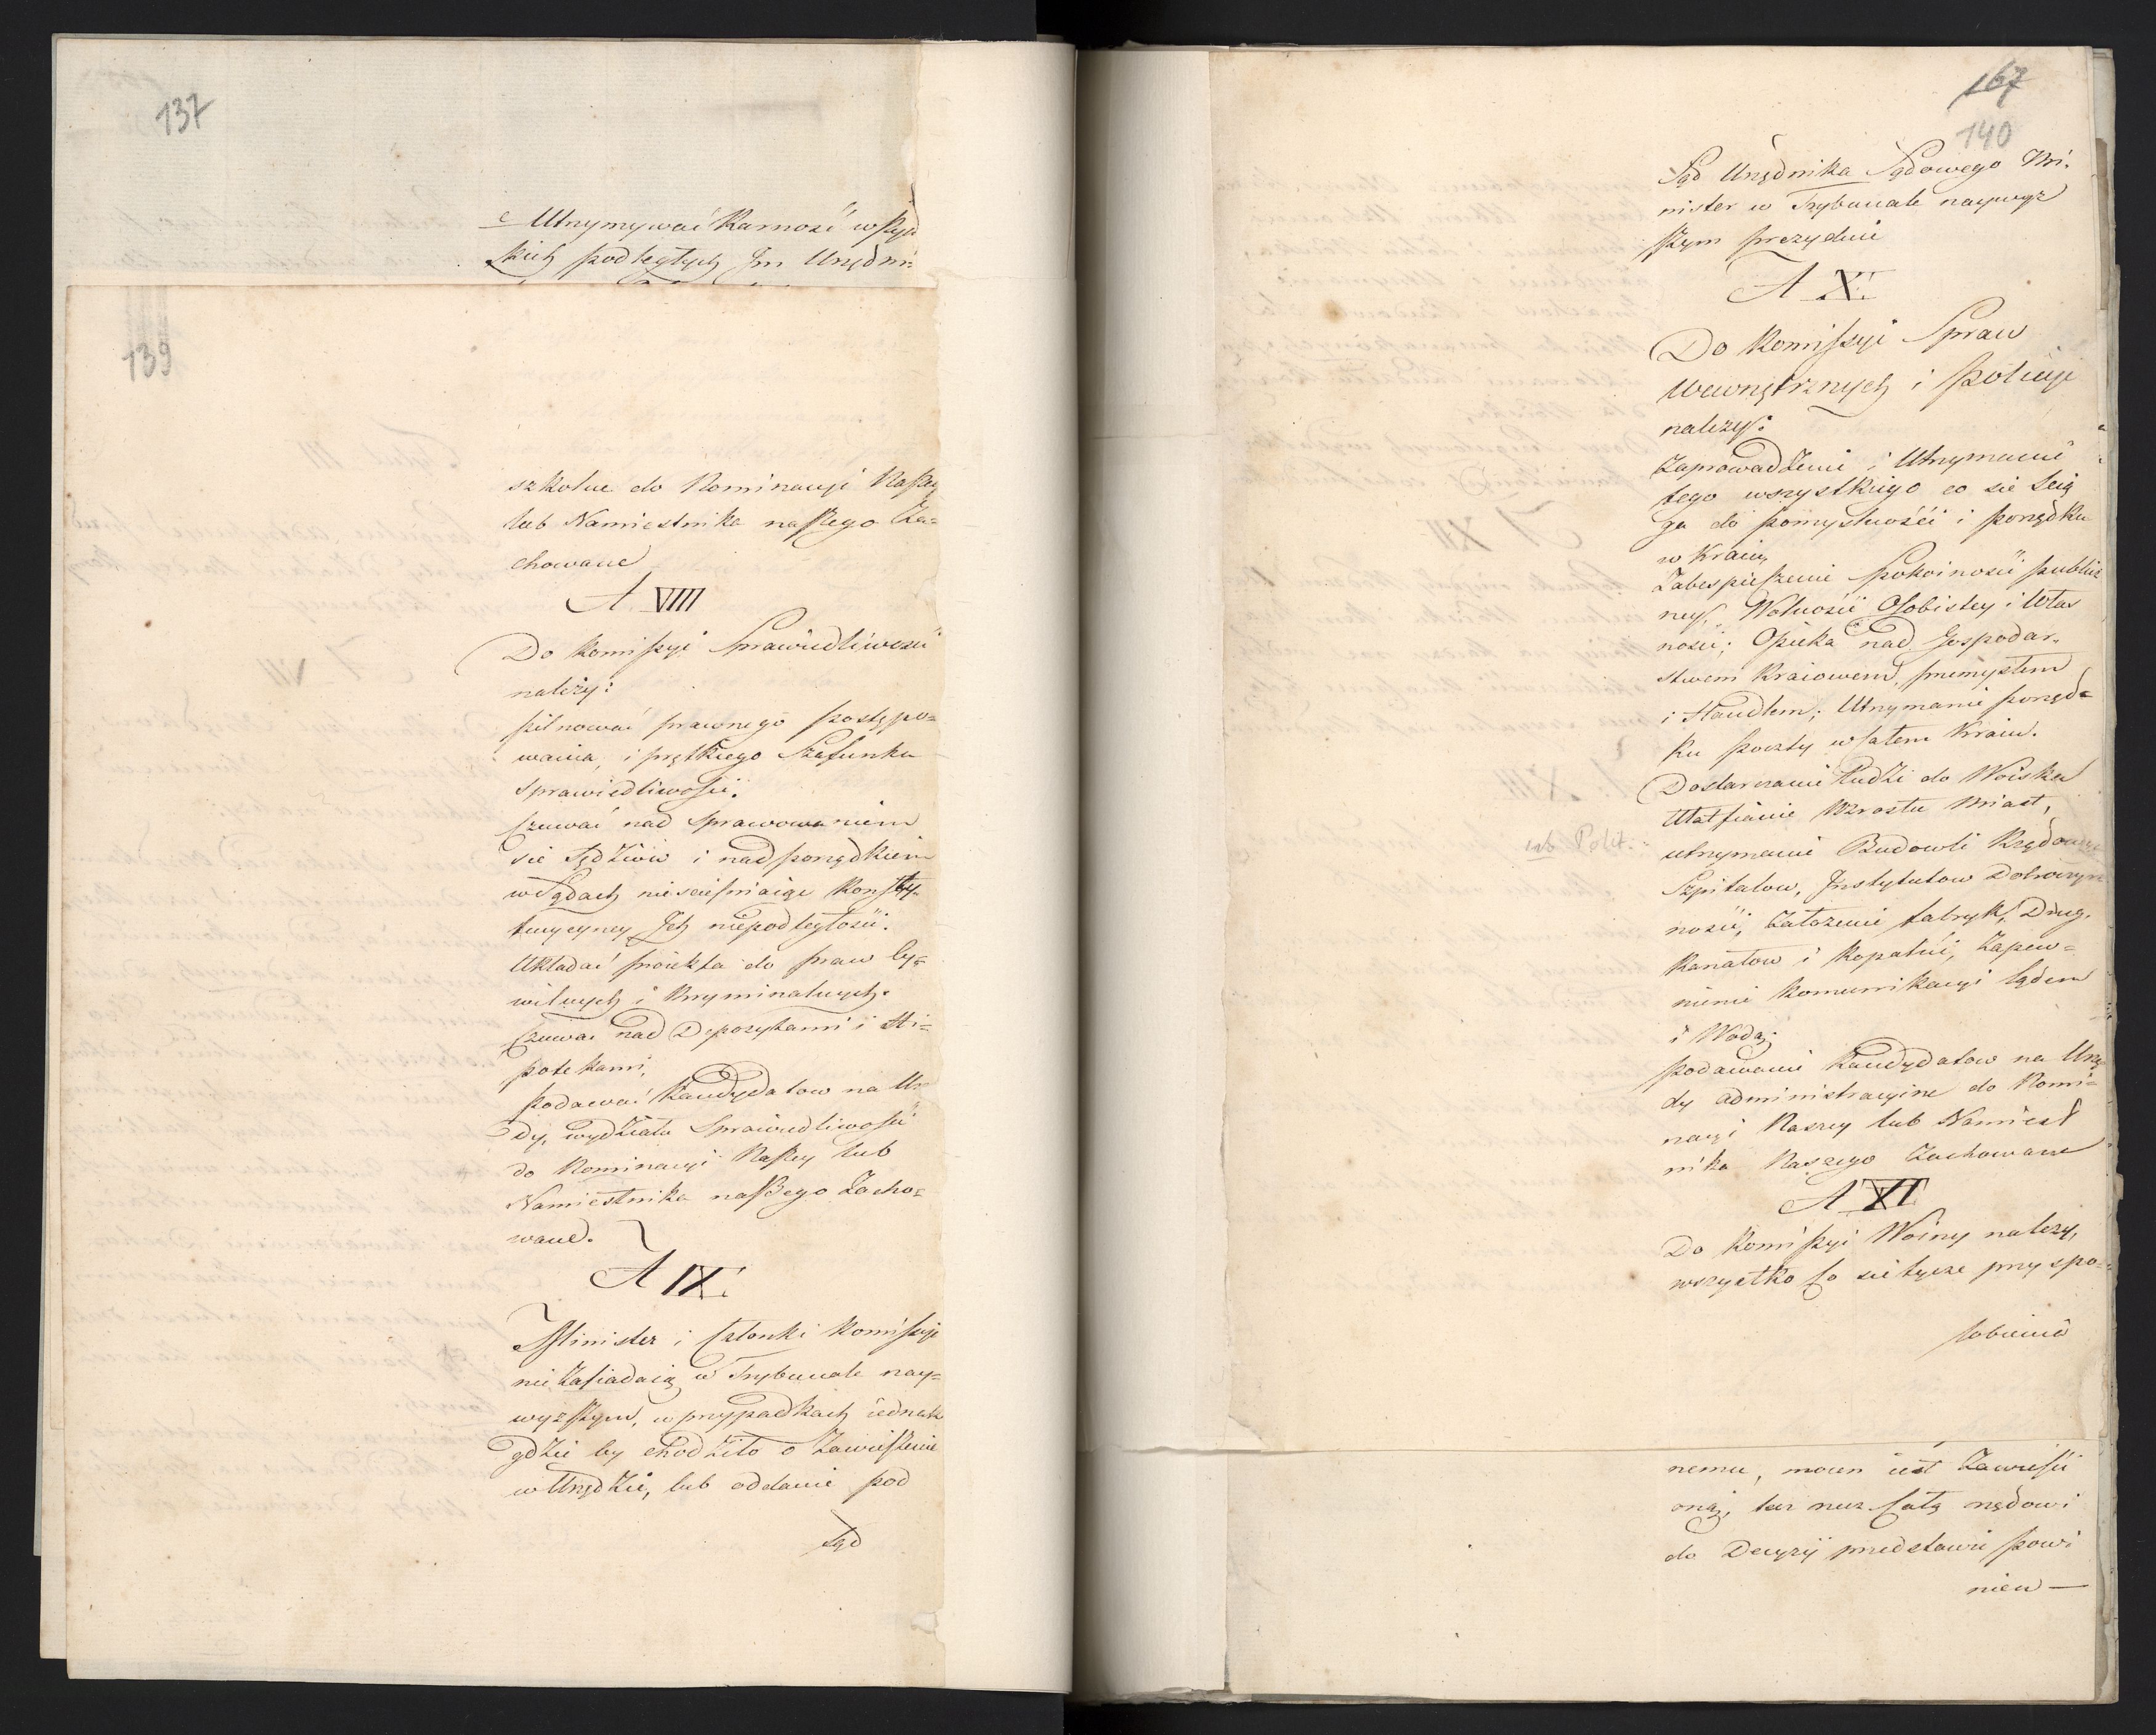 137
Utrzymywać Karność wszyst
kich podległych Im Urzędni=
139
szkolne do Nominacyi Naszey
lub Namiestnika naszego Za=
chowane
A VIII
Do Komissyi Sprawiedliwości
należy:
pilnować prawnego postępo=
wania, i prętkiego Szafunku
Sprawiedliwości.
Czuwać nad Sprawowaniem
się Sędziów i nad porządkiem
w Sądach nieścieśniaiąc Konsty=
tucyiney Ich niepodległości.
Układać proiekta do praw Cy=
wilnych i Kryminalnych.
Czuwać nad Depozytami i Hi=
potekami.
podawać Kandydatow na Urzę
dy, wydziału Sprawiedliwości
do Nominacyi Naszey lub
Namiestnika naszego Zacho=
wane.
A IX.
Minister i Członki Komissyi
nie Zasiadaią w Trybunale nay=
wyższym, w przypadkach iednak
gdzie by chodziło o Zawieszenie
w Urzędzie, lub oddanie pod
Sąd
167
140
Sąd Urzędnika Sądowego Mi.
nister w Trybunale naywyż
szym prezyduie
A X.
Do Komissyi Spraw
Wewnętrznych i Policyi
należy:
Zaprowadzenie i Utrzymanie
tego wszystkiego co się ścią
ga do pomyślności i porządku
w Kraiu,
Zabespieczenie Spokoiności publicz
ney, Wolności Osobistey i Włas
ności; Opieka nad Gospodar.
stwem Kraiowem, przemysłem
i Handlem; Utrzymanie porząd=
ku poczty w całem Kraiu.
Dostarczanie ludzi do Woiska
Ułatfianie Wzrostu Miast,
utrzymanie Budowli Rządowych
Szpitalow, Instytutow Dobroczyn
ności, Założenie fabryk, Drug,
Kanałow i Kopalni, Zapew=
nienie Komunikacyi lądem
i Wodą;
podawanie Kandydatow na Urzę
dy administracyine do Nomi=
nacyi Naszey lub Namiest
nika Naszego Zachowane
A XI
Do Komissyi Woiny należy,
wszystko Co się tycze przyspo=
sobienia
nemu, mocen iest Zawiesić
onąż, lecz rzecz Całą rządowi
do Decyzyi przedstawić powi
nien —